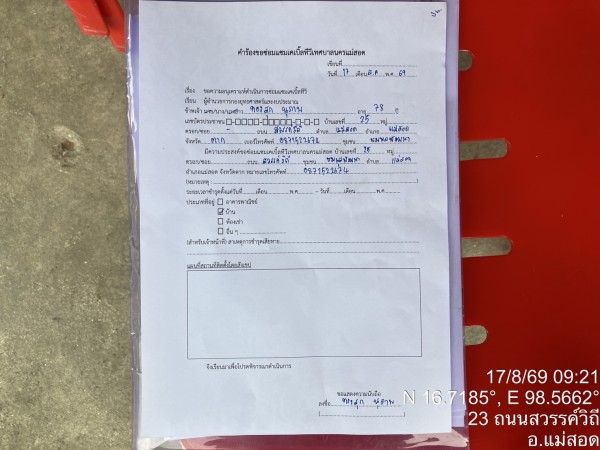 คำร้องขอซ่อมแซมเคเบิ้ลทีวีเทศบาลนครแม่สอด
เขียนที่
วันที่ 17 เดือน ส.ค. พ.ศ. 69
เรื่อง ขอความอนุเคราะห์ดำเนินการซ่อมแซมเคเบิ้ลทีวี
เรียน ผู้อำนวยการกองยุทธศาสตร์และงบประมาณ
ข้าพเจ้า นาย/นาง/นางสาว อายุ 78 ปี
เลขบัตรประชาชน บ้านเลขที่ 25 หมู่
ตรอก/ซอย - ถนน สวรรค์วิถี ตำบล แม่สอด อำเภอ แม่สอด
จังหวัด ตาก เบอร์โทรศัพท์ ชุมชน
มีความประสงค์ขอซ่อมแซมเคเบิ้ลทีวีเทศบาลนครแม่สอด บ้านเลขที่ หมู่
ตรอก/ซอย ถนน สวรรค์วิถี ชุมชน ตำบล แม่สอด
อำเภอแม่สอด จังหวัดตาก หมายเลขโทรศัพท์ 0871522674
(หมายเหตุ )
ระยะเวลาชำรุดตั้งแต่วันที่ เดือน พ.ศ. - วันที่ เดือน พ.ศ.
ประเภทที่อยู่ อาคารพาณิชย์
บ้าน
ห้องเช่า
อื่น ๆ
(สำหรับเจ้าหน้าที่) สาเหตุการชำรุดเสียหาย
แผนที่สถานที่ติดตั้งโดยสังเขป
จึงเรียนมาเพื่อโปรดพิจารณาดำเนินการ
ขอแสดงความนับถือ
ลงชื่อ
17/8/69 09:21
N 16.7185°, E 98.5662°
23 ถนนสวรรค์วิถี
อ.แม่สอด